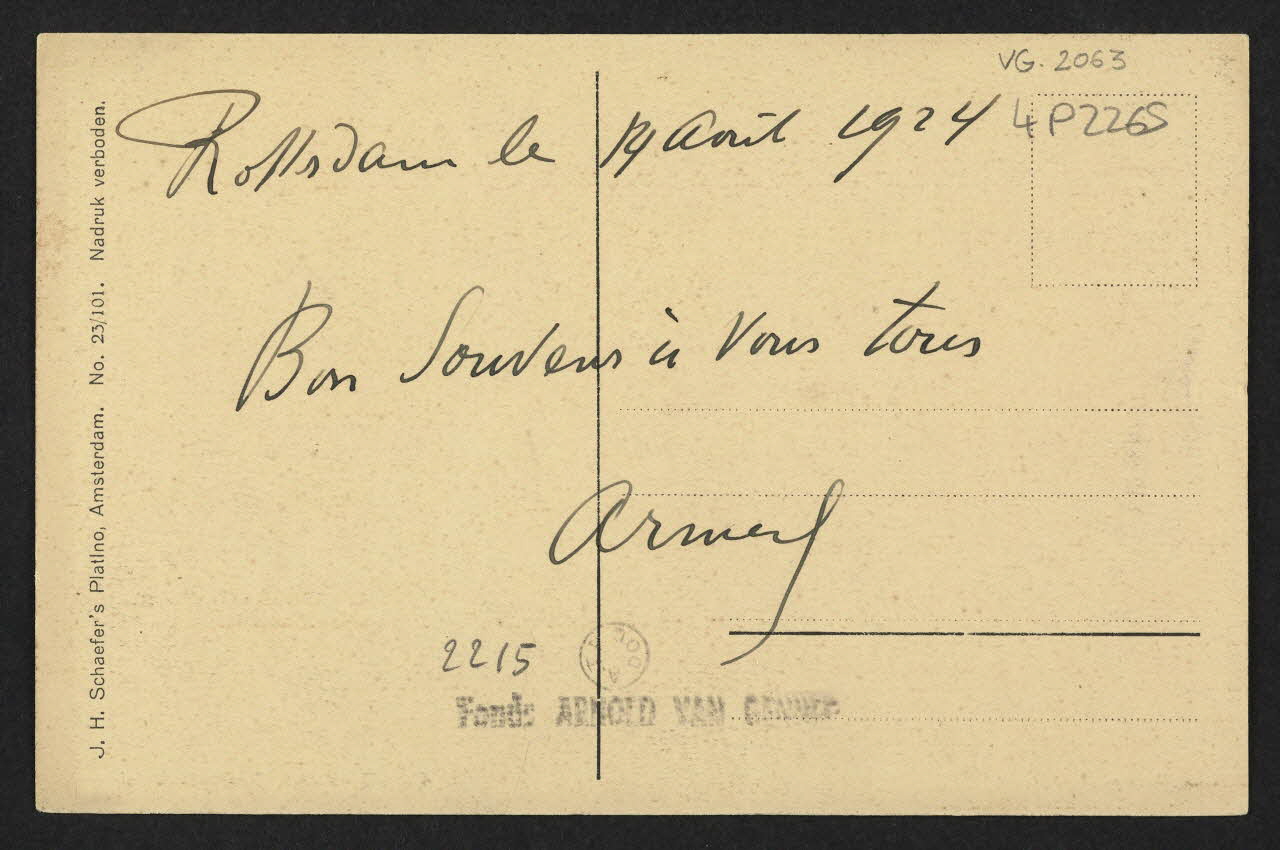 VG. 2063
4 P226S
Rotterdam le 19 Août 1924
Bon Souvenir à Vous tous
2215
Fonds ARNOLD VAN GENNEP
J. H. Schaefer's Platino, Amsterdam. No. 23/101. Nadruk verboden.